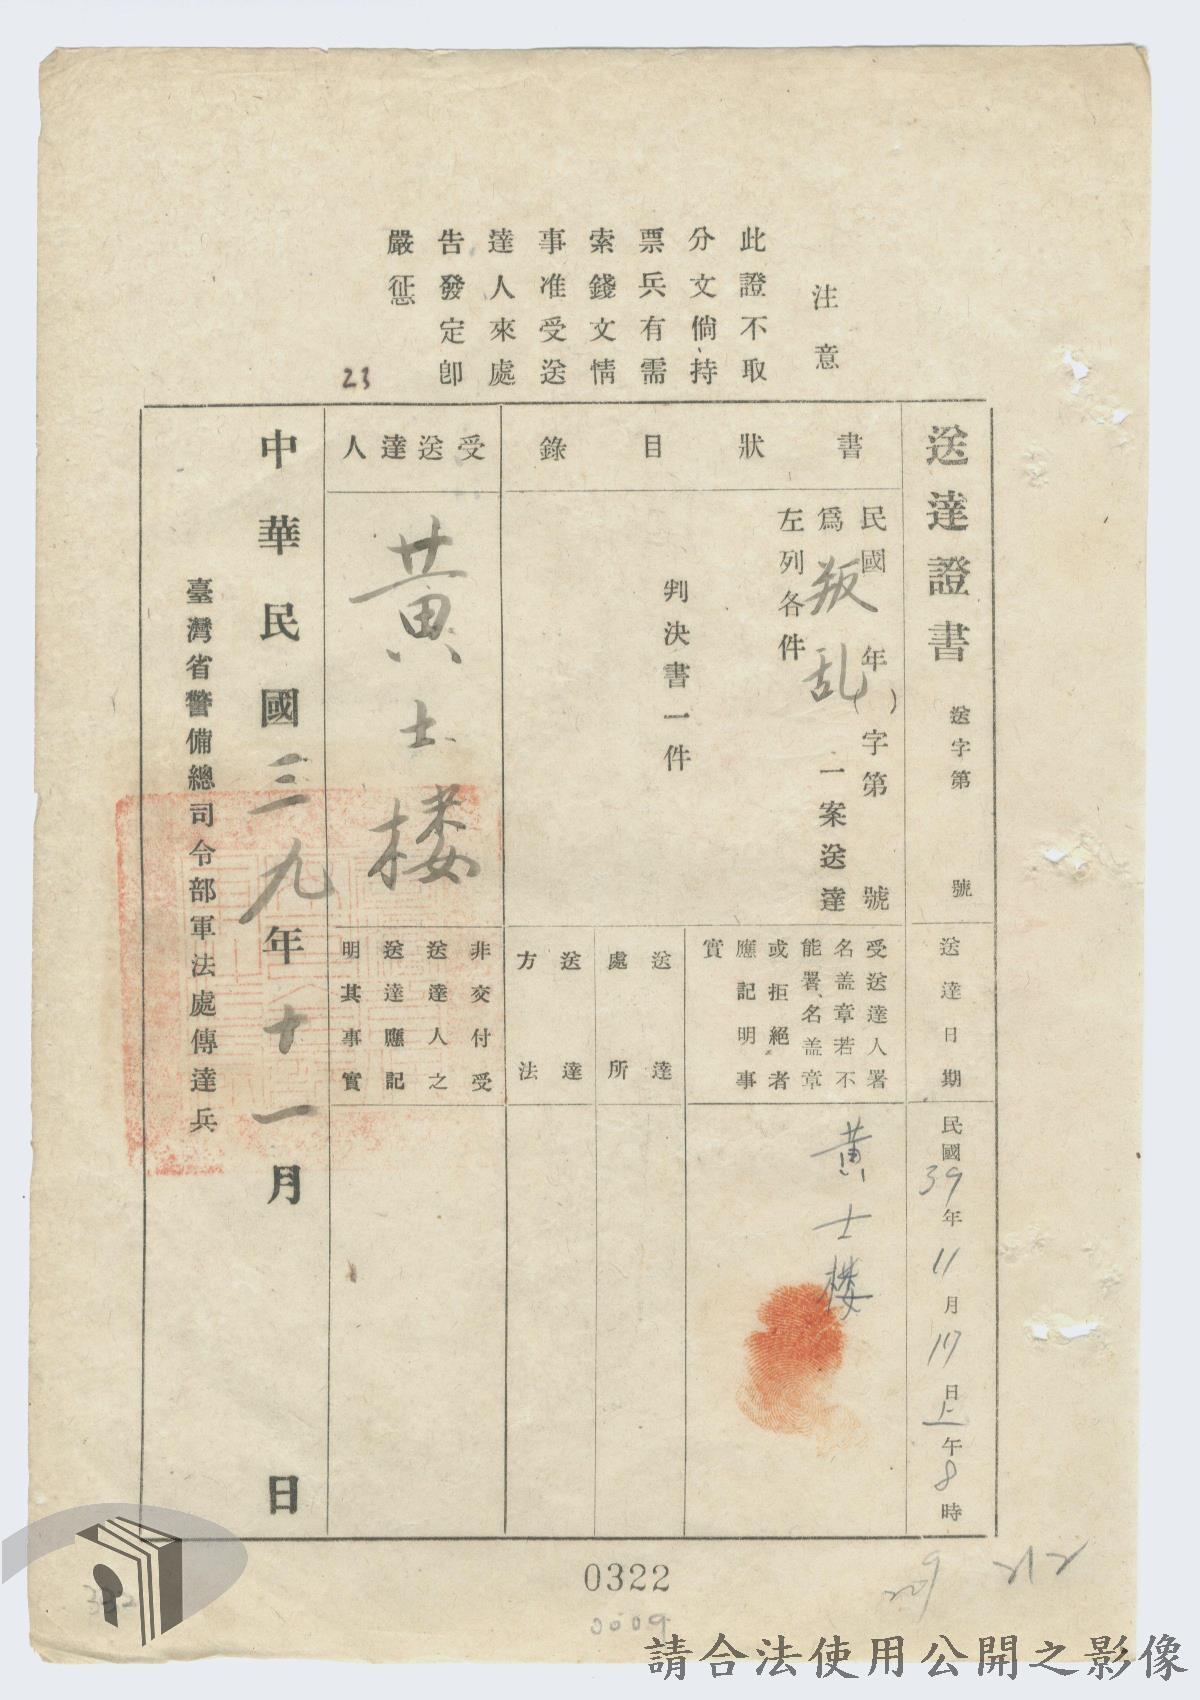 注意
此證不取
分文倘持
票兵有需
索錢文情
事准受送
達人來處
告發定卽
嚴懲
23
送達證書
送字第　號
書狀目錄
民國　年（　）字第　號
爲叛乱一案送達
左列各件
判決書一件
受送達人
黃士楼
送達日期
民國39年11月17日上午8時
受送達人署
名盖章若不
能署名盖章
或拒絕者
應記明事
實
黃士楼
送達處所
送達方法
非交付受
送達人之
送達應記
明其事實
中華民國三九年十一月　日
臺灣省警備總司令部軍法處傳達兵
0322
0009
332
212
請合法使用公開之影像